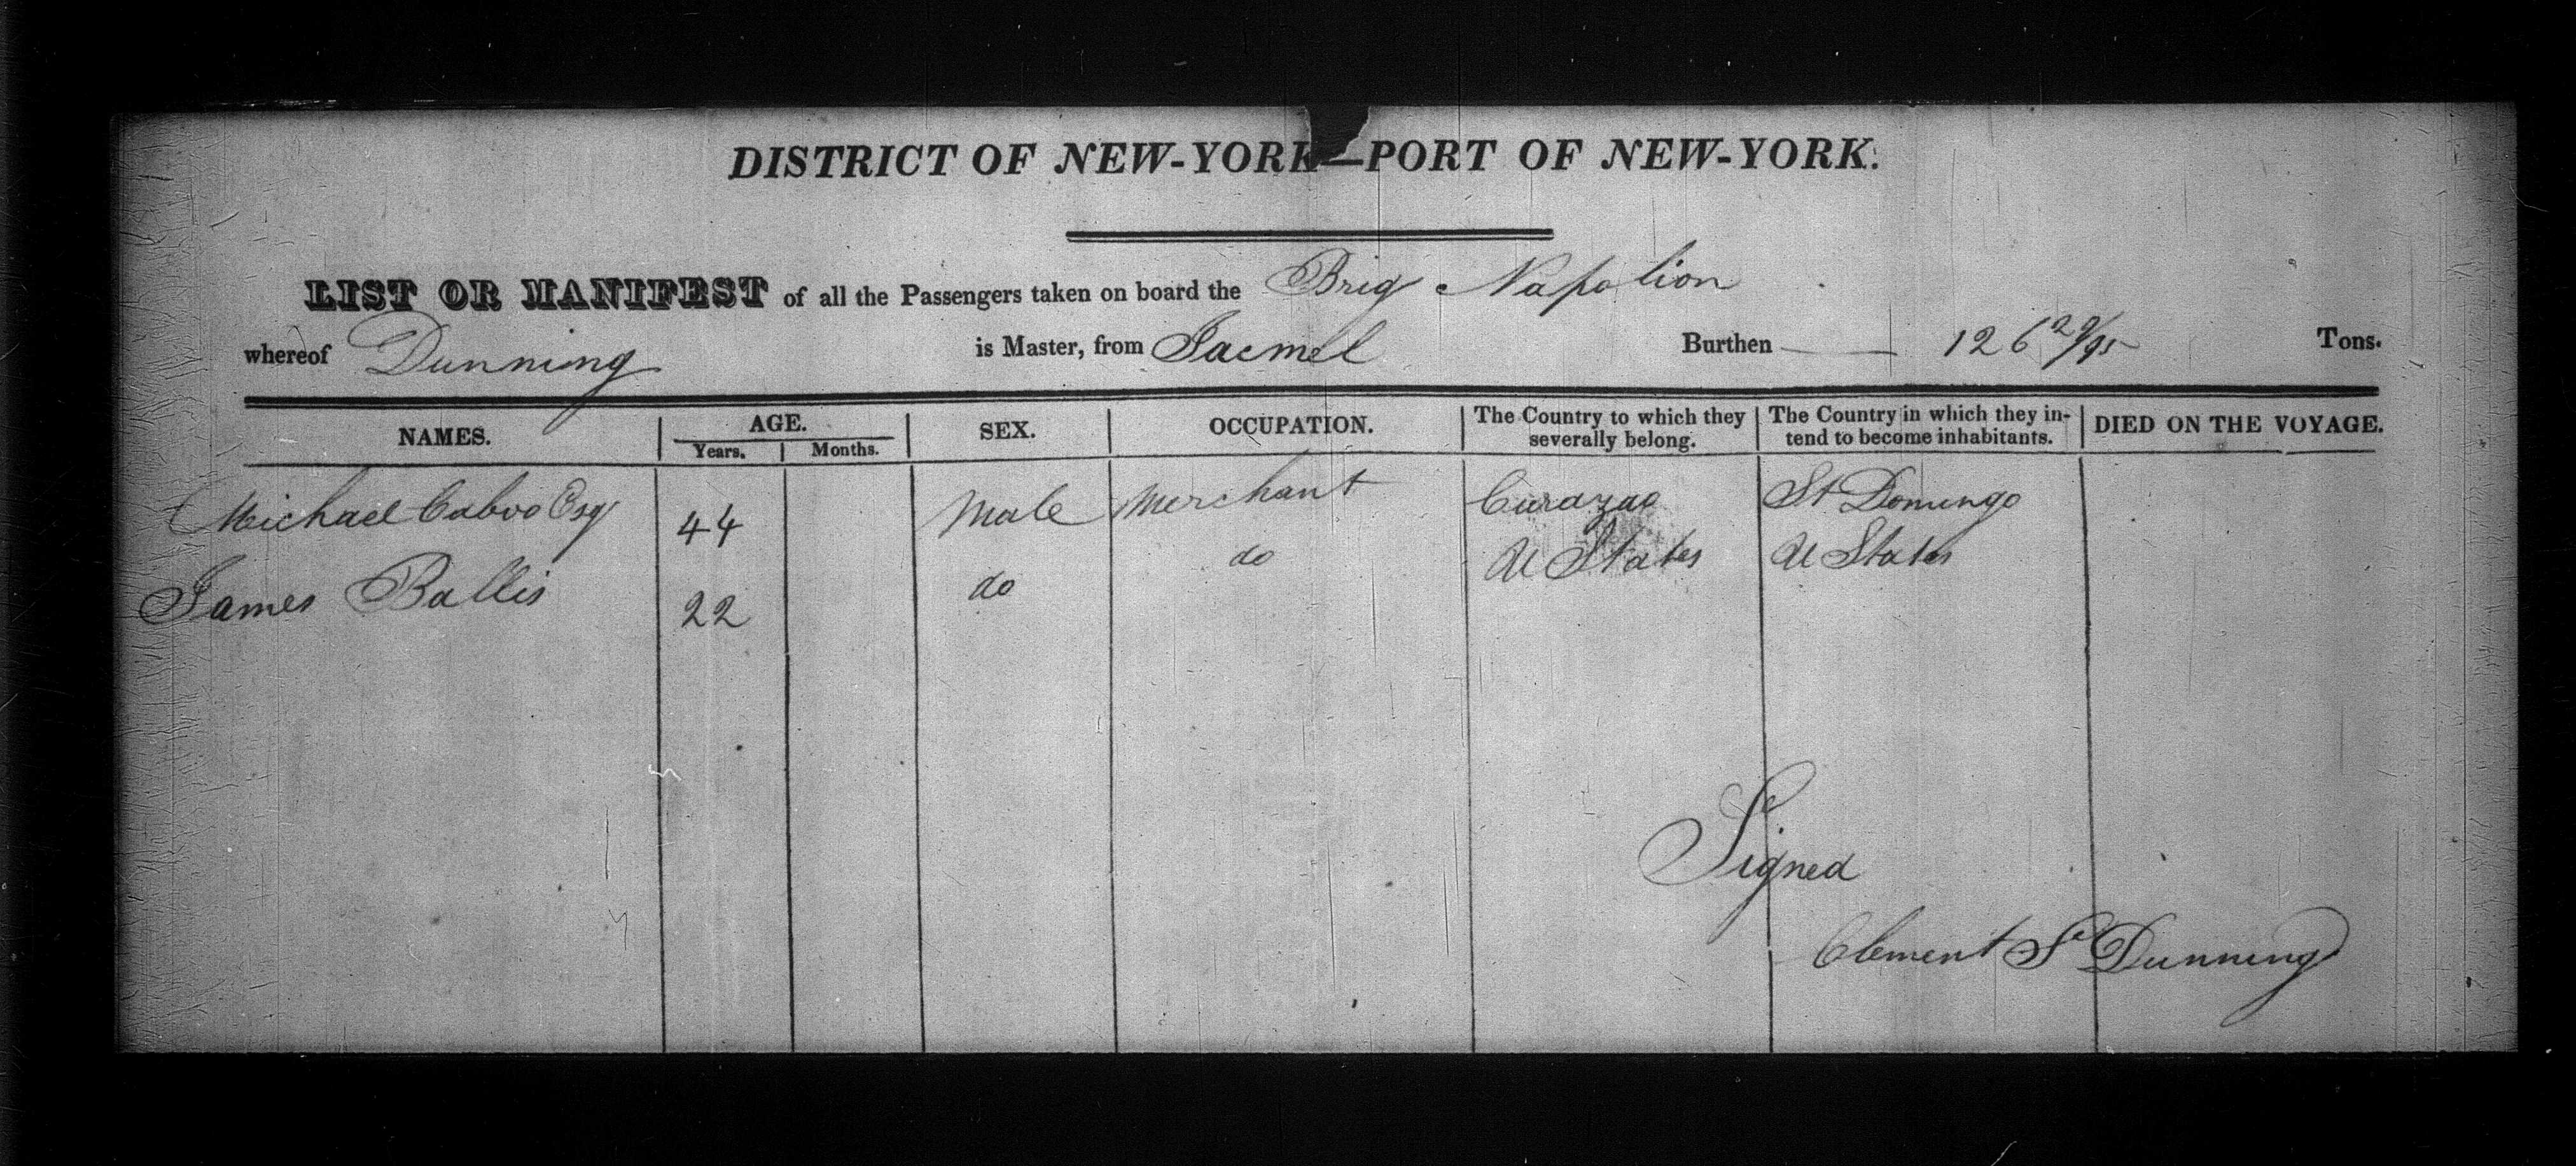 DISTRICT OF NEW-YORK—PORT OF NEW-YORK.
LIST OR MANIFEST of all the Passengers taken on board the Brig Napolion
whereof Dunning is Master, from Jacmel Burthen 126 29/95 Tons.
NAMES. AGE. SEX. OCCUPATION. The Country to which they severally belong. The Country in which they intend to become inhabitants. DIED ON THE VOYAGE.
Years. Months.
Michael Esq 44 Male Merchant Curazao St Domingo
James Ballis 22 do do U States U States
Signed
Clement S Dunning